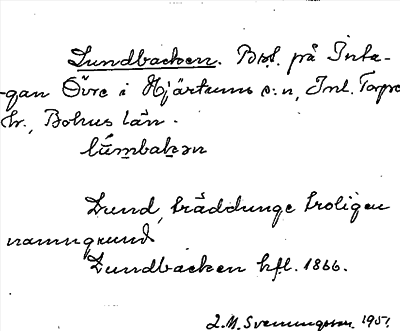 Lundbacken. Bst. på Inta-
-gan Övre i Hjärtums s:n, Inl. Torpe
hr., Bohus län.
lúmbakən
Lund, träddunge troligen
namngrund
Lundbacken hfl. 1866.
J.M. Svenungsson 1951.